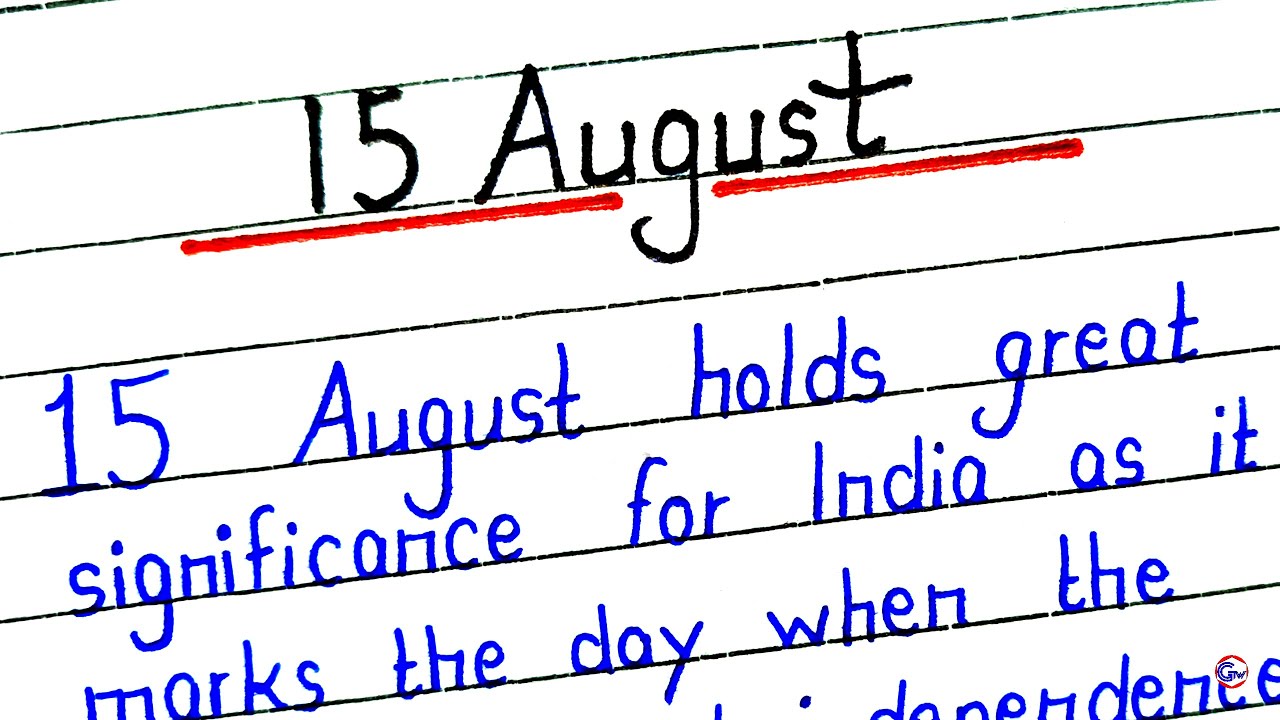 15 August
15 August holds great
significance for India as it
marks the day when the
independence